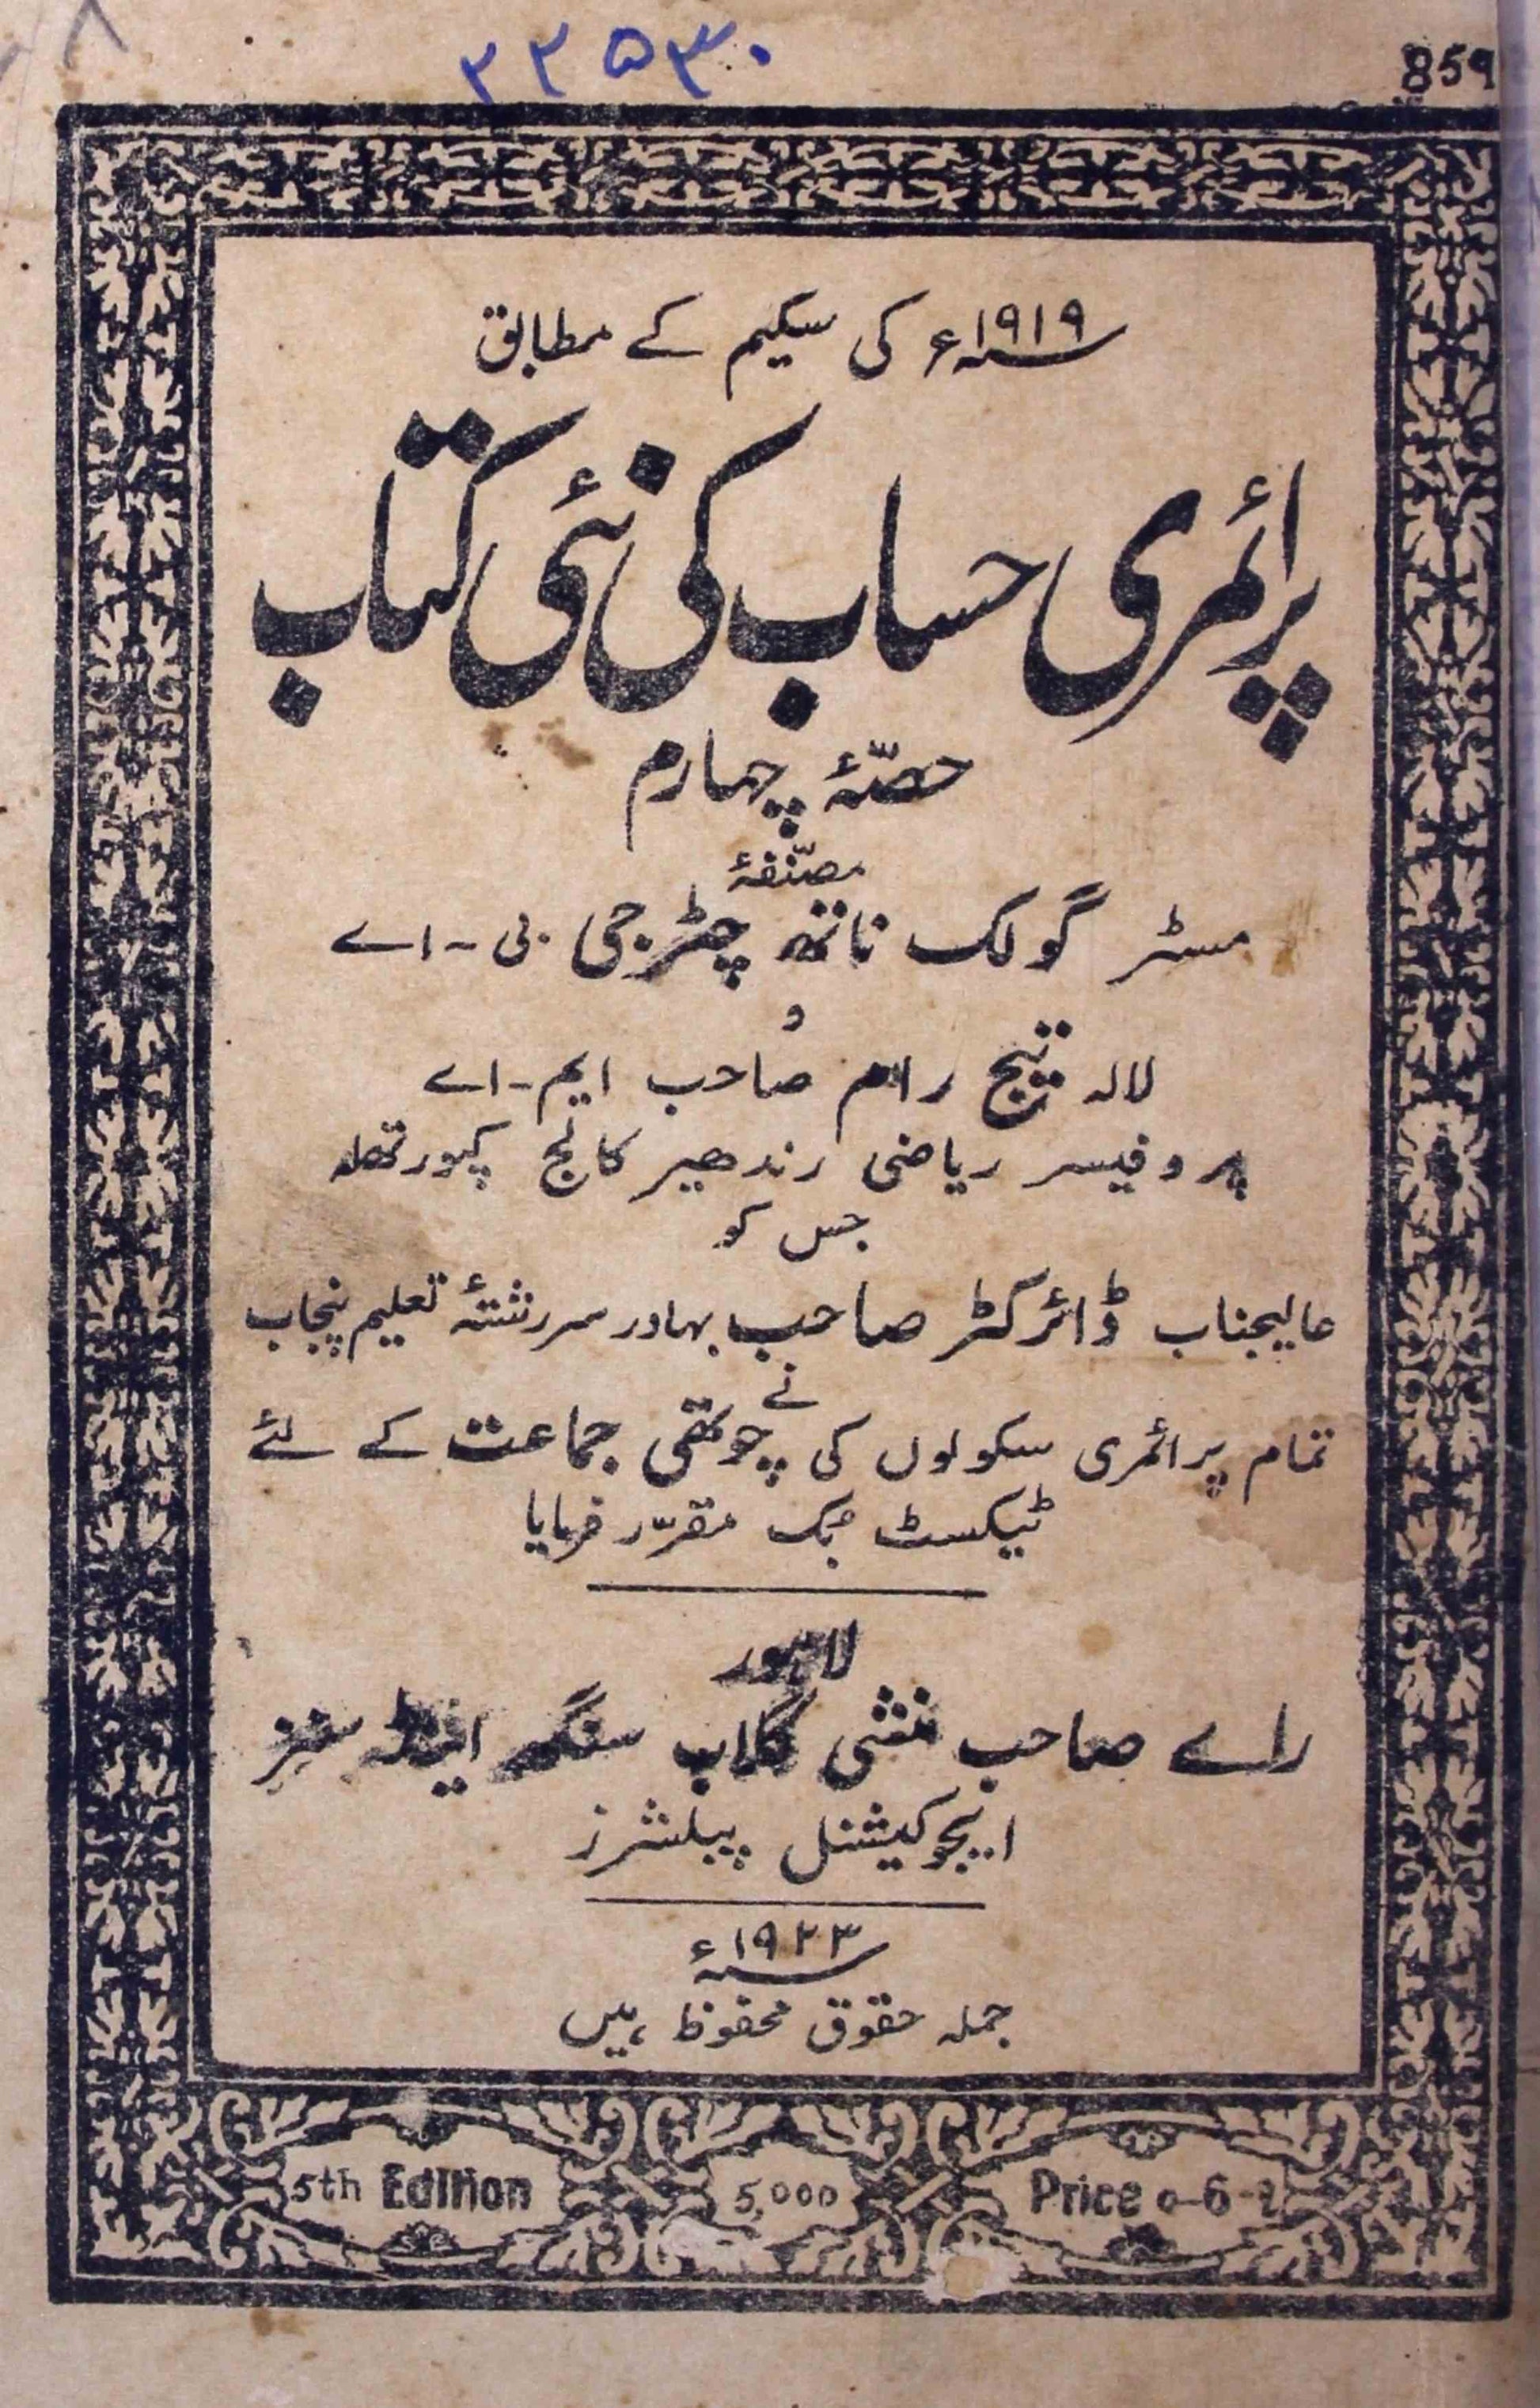 ۲۲۵۳۰
859
۱۹۱۹ء کی سکیم کے مطابق
پرائمری حساب کی نئی کتاب
حصّۂ چہارم
مصنّفۂ
مسٹر گولک ناتھ چٹرجی بی-اے
و
لالہ تیج رام صاحب ایم-اے
پروفیسر ریاضی رندھیر کالج کپورتھلہ
جس کو
عالیجناب ڈائرکٹر صاحب بہادر سررشتۂ تعلیم پنجاب
نے
تمام پرائمری سکولوں کی چوتھی جماعت کے لئے
ٹیکسٹ بک مقرّر فرمایا
لاہور
رائے صاحب منشی گلاب سنگھ اینڈ سنز
ایجوکیشنل پبلشرز
۱۹۲۳ء
جملہ حقوق محفوظ ہیں
5th Edition 5,000 Price 0-6-